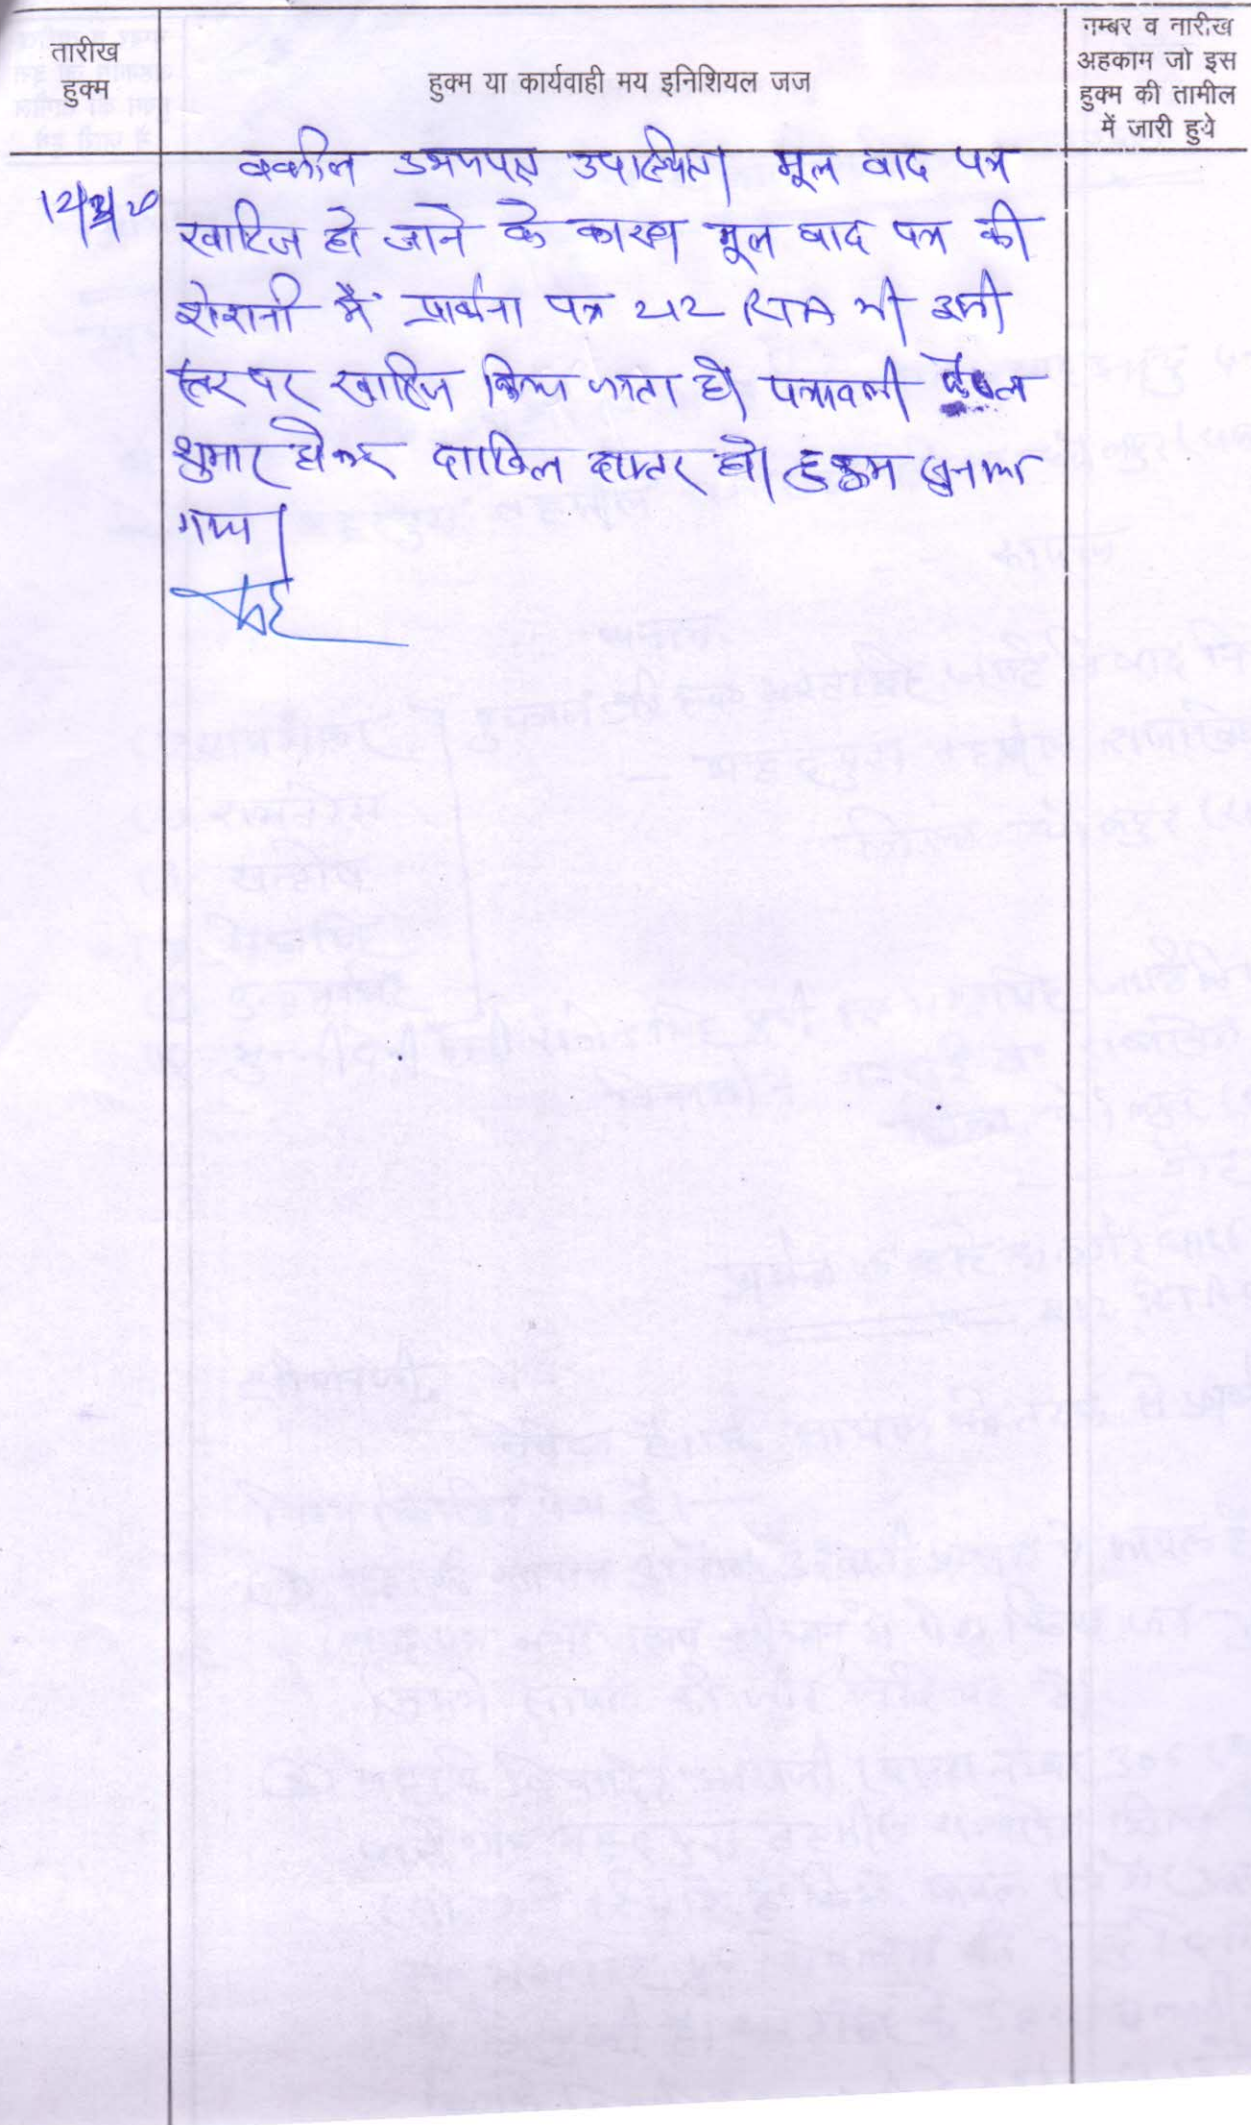 तारीख
हुक्म
हुक्म या कार्यवाही मय इनिशियल जज
नम्बर व तारीख
अहकाम जो इस
हुक्म की तामील
में जारी हुये
वकील उभयपक्ष उपस्थित। मूल वाद पत्र
खारिज हो जाने के कारण मूल वाद पत्र की
रोशनी में प्रार्थना पत्र 212 RTA भी इसी
स्तर पर खारिज किया जाता है। पत्रावली फैसल
शुमार होकर दाखिल दफ्तर हो। हुक्म सुनाया
गया।